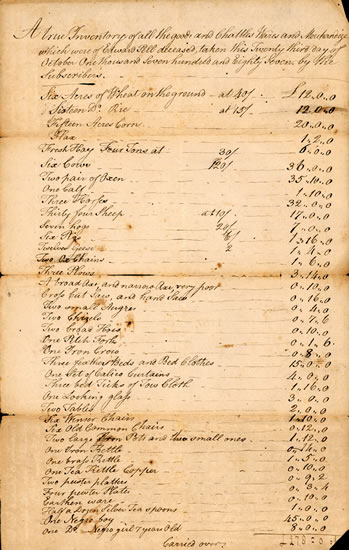 A true Inventory of all the goods and Chattles Wares and Merchandize
which were of Edward Hill deceased, taken this Twenty third day of
October One thousand Seven hundred and Eighty Seven by the
Subscribers.
Six Acres of Wheat on the ground at 40/ £12..0..0
Sixteen Do. Rie at 15/ 12..0..0
Fifteen Acres Corn 20..0..0
Flax 1..2..0
Fresh Hay Four Tons at 30/ 6..0..0
Six Cows 120/ 36..0..0
Two pair of Oxen 35..10..0
One Calf 1..10..0
Three Horses 32..0..0
Thirty four Sheep at 10/ 17..0..0
Seven hogs 20/ 7..0..0
Six 6/ 1..16..0
Twelve Geese 2 1..4..0
Two Ox Chains 1..6..0
Three Plows 3..14..0
A broad Ax, and narrow Ax, very poor 0..10..0
Cross Cut Saw, and hand Saw 0..16..0
Two small Augers 0..4..0
Two Chizels 0..7..6
Two broad Hoes 0..10..0
One Pitch Fork 0..1..6
One Iron Crow 0..8..0
Three feather Beds and Bed Clothes 15..0..0
One Set of Calico Curtains 4..0..0
Three bed Ticks of Tow Cloth 1..16..0
One Looking glass 3..0..0
Two Tables 2..0..0
Six Winsor Chairs 1..10..0
Six Old Common Chairs 0..12..0
Two large Iron Pots and two small ones 1..12..0
One Iron Kettle
One brass Kettle 1..5..0
One Tea Kettle Copper 0..10..0
Two pewter platters 0..9..2
Four pewter Plates 0..3..4
Earthen ware 0..10..0
Half a Dozen Silver Tea spoons 1..0..0
One Negro boy 45..0..0
One Do. Negro girl 7 years Old 8..0..0
Carried over